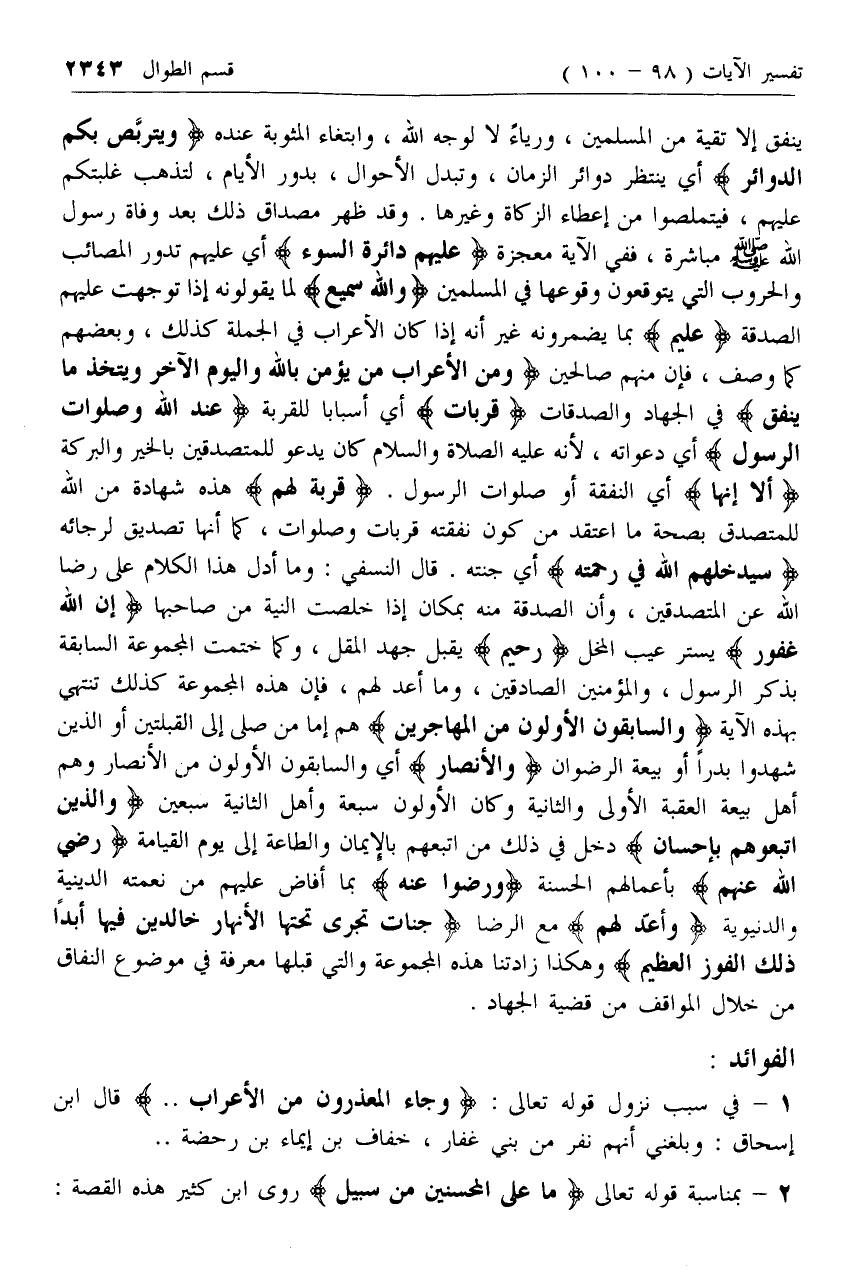 تفسير الآيات ( ٩٨ - ١٠٠ ) قسم الطوال ٢٣٤٣
ينفق إلا تقية من المسلمين ، ورياءً لا لوجه الله ، وابتغاء المثوبة عنده ﴿ ويتربَّص بكم
الدوائر ﴾ أي ينتظر دوائر الزمان ، وتبدل الأحوال ، بدور الأيام ، لتذهب غلبتكم
عليهم ، فيتملصوا من إعطاء الزكاة وغيرها . وقد ظهر مصداق ذلك بعد وفاة رسول
الله ﷺ مباشرة ، ففي الآية معجزة ﴿ عليهم دائرة السوء ﴾ أي عليهم تدور المصائب
والحروب التي يتوقعون وقوعها في المسلمين ﴿والله سميع﴾ لما يقولونه إذا توجهت عليهم
الصدقة ﴿ عليم ﴾ بما يضمرونه غير أنه إذا كان الأعراب في الجملة كذلك ، وبعضهم
كما وصف ، فإن منهم صالحين ﴿ ومن الأعراب من يؤمن بالله واليوم الآخر ويتخذ ما
ينفق ﴾ في الجهاد والصدقات ﴿ قربات ﴾ أي أسبابا للقربة ﴿ عند الله وصلوات
الرسول ﴾ أي دعواته ، لأنه عليه الصلاة والسلام كان يدعو للمتصدقين بالخير والبركة
﴿ ألا إنها ﴾ أي النفقة أو صلوات الرسول . ﴿ قربة لهم ﴾ هذه شهادة من الله
للمتصدق بصحة ما اعتقد من كون نفقته قربات وصلوات ، كما أنها تصديق لرجائه
﴿ سيدخلهم الله في رحمته ﴾ أي جنته . قال النسفي : وما أدل هذا الكلام على رضا
الله عن المتصدقين ، وأن الصدقة منه بمكان إذا خلصت النية من صاحبها ﴿ إن الله
غفور ﴾ يستر عيب المخل ﴿ رحيم ﴾ يقبل جهد المقل ، وكما ختمت المجموعة السابقة
بذكر الرسول ، والمؤمنين الصادقين ، وما أعد لهم ، فإن هذه المجموعة كذلك تنتهي
بهذه الآية ﴿ والسابقون الأولون من المهاجرين ﴾ هم إما من صلى إلى القبلتين أو الذين
شهدوا بدراً أو بيعة الرضوان ﴿ والأنصار ﴾ أي والسابقون الأولون من الأنصار وهم
أهل بيعة العقبة الأولى والثانية وكان الأولون سبعة وأهل الثانية سبعين ﴿ والذين
اتبعوهم بإحسان ﴾ دخل في ذلك من اتبعهم بالإيمان والطاعة إلى يوم القيامة ﴿ رضي
الله عنهم ﴾ بأعمالهم الحسنة ﴿ورضوا عنه ﴾ بما أفاض عليهم من نعمته الدينية
والدنيوية ﴿ وأعدّ لهم ﴾ مع الرضا ﴿ جنات تجرى تحتها الأنهار خالدين فيها أبداً
ذلك الفوز العظيم ﴾ وهكذا زادتنا هذه المجموعة والتي قبلها معرفة في موضوع النفاق
من خلال المواقف من قضية الجهاد .
الفوائد :
١ - في سبب نزول قوله تعالى : ﴿ وجاء المعذرون من الأعراب .. ﴾ قال ابن
إسحاق : وبلغني أنهم نفر من بني غفار ، خفاف بن إيماء بن رحضة ..
٢ - بمناسبة قوله تعالى ﴿ ما على المحسنين من سبيل ﴾ روى ابن كثير هذه القصة :